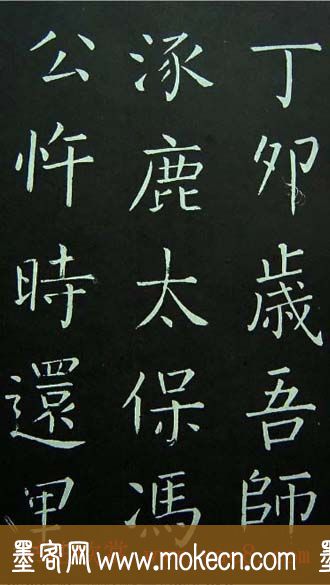 丁卯歳吾師
涿鹿太保馮
公忤時還里
墨客网 www.mokecn.com 墨